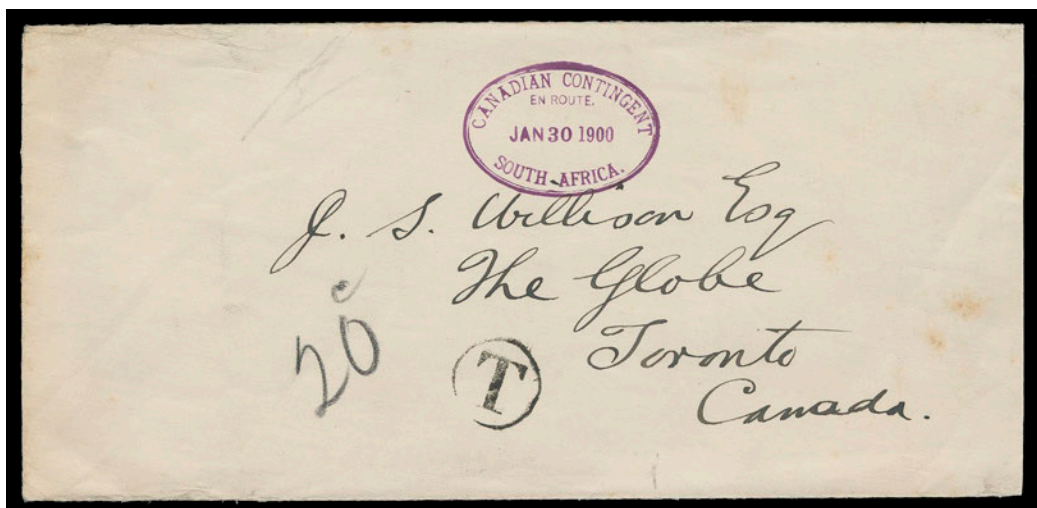 CANADIAN CONTINGENT
EN ROUTE.
JAN 30 1900
SOUTH AFRICA.
J. S. Willison Esq
The Globe
Toronto
Canada.
20c
T